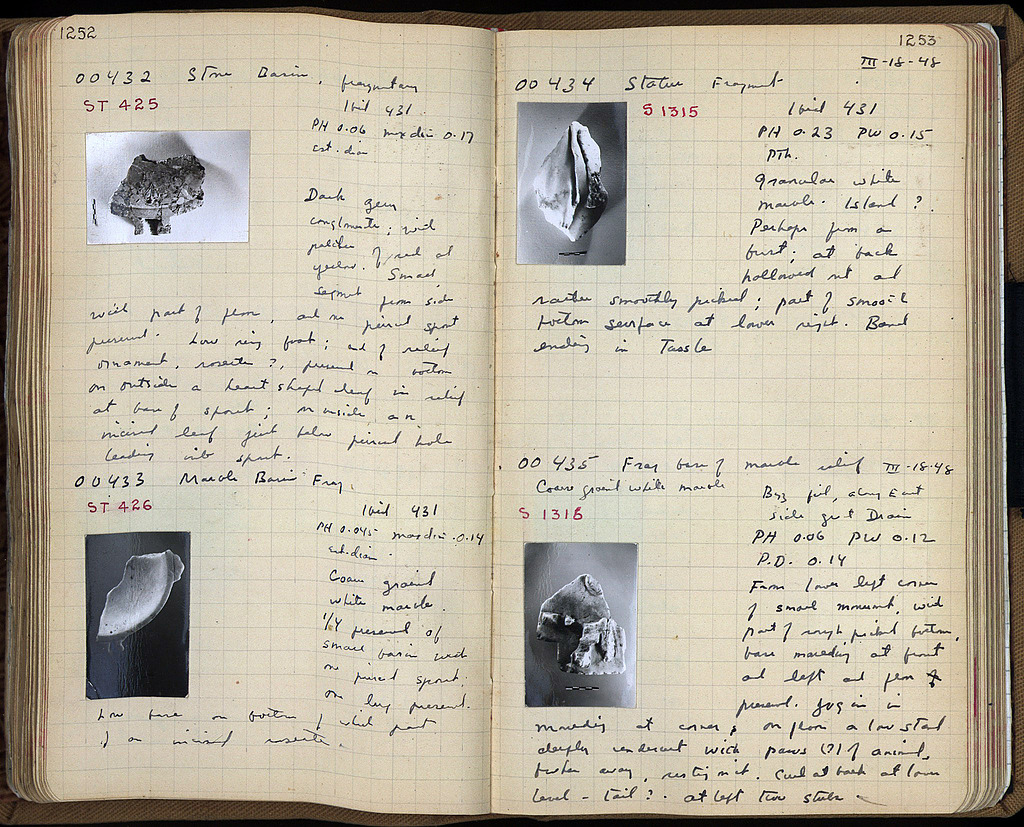 1252
00432 Stone Basin, fragmentary
ST 425
Ibid 431
PH 0.06 max dim 0.17
est. diam
Dark grey
conglomerate; with
patches of red and
yellow. Small
segment from side
with part of floor, and one pierced spout
present. Low ring foot; end of relief
ornament, rosette ?, present on bottom
on outside a heart shaped leaf in relief
at base of spout; on inside, an
incised leaf just below pierced hole
leading into spout.
00433 Marble Basin Frag.
ST 426
Ibid 431
PH 0.045 max dim. 0.14
est. diam.
Coarse grained
white marble.
1/4 present of
small basin with
one pierced spout.
one lug present.
Low base on bottom of which part
of an incised rosette.
1253
III-18-48
00434 Statue Fragment
S 1315
Ibid 431
PH 0.23 PW 0.15
PTh.
Granular white
marble. Island ?.
Perhaps from a
bust; at back
hollowed out and
rather smoothly picked; part of smooth
bottom surface at lower right. Band
ending in Tassle
00435 Frag base of marble relief III-18-48
Coarse grained white marble
S 1316
Byz fill, along East
side Grt Drain
PH 0.06 PW 0.12
P.D. 0.14
From lower left corner
of small monument, with
part of rough picked bottom,
base moulding at front
and left and floor
present. Jog in in
moulding at corner; on floor a low stand
deeply undercut with paws (?) of animal,
broken away, resting on it. Curl at back at lower
level - tail ?. at left two stubs.